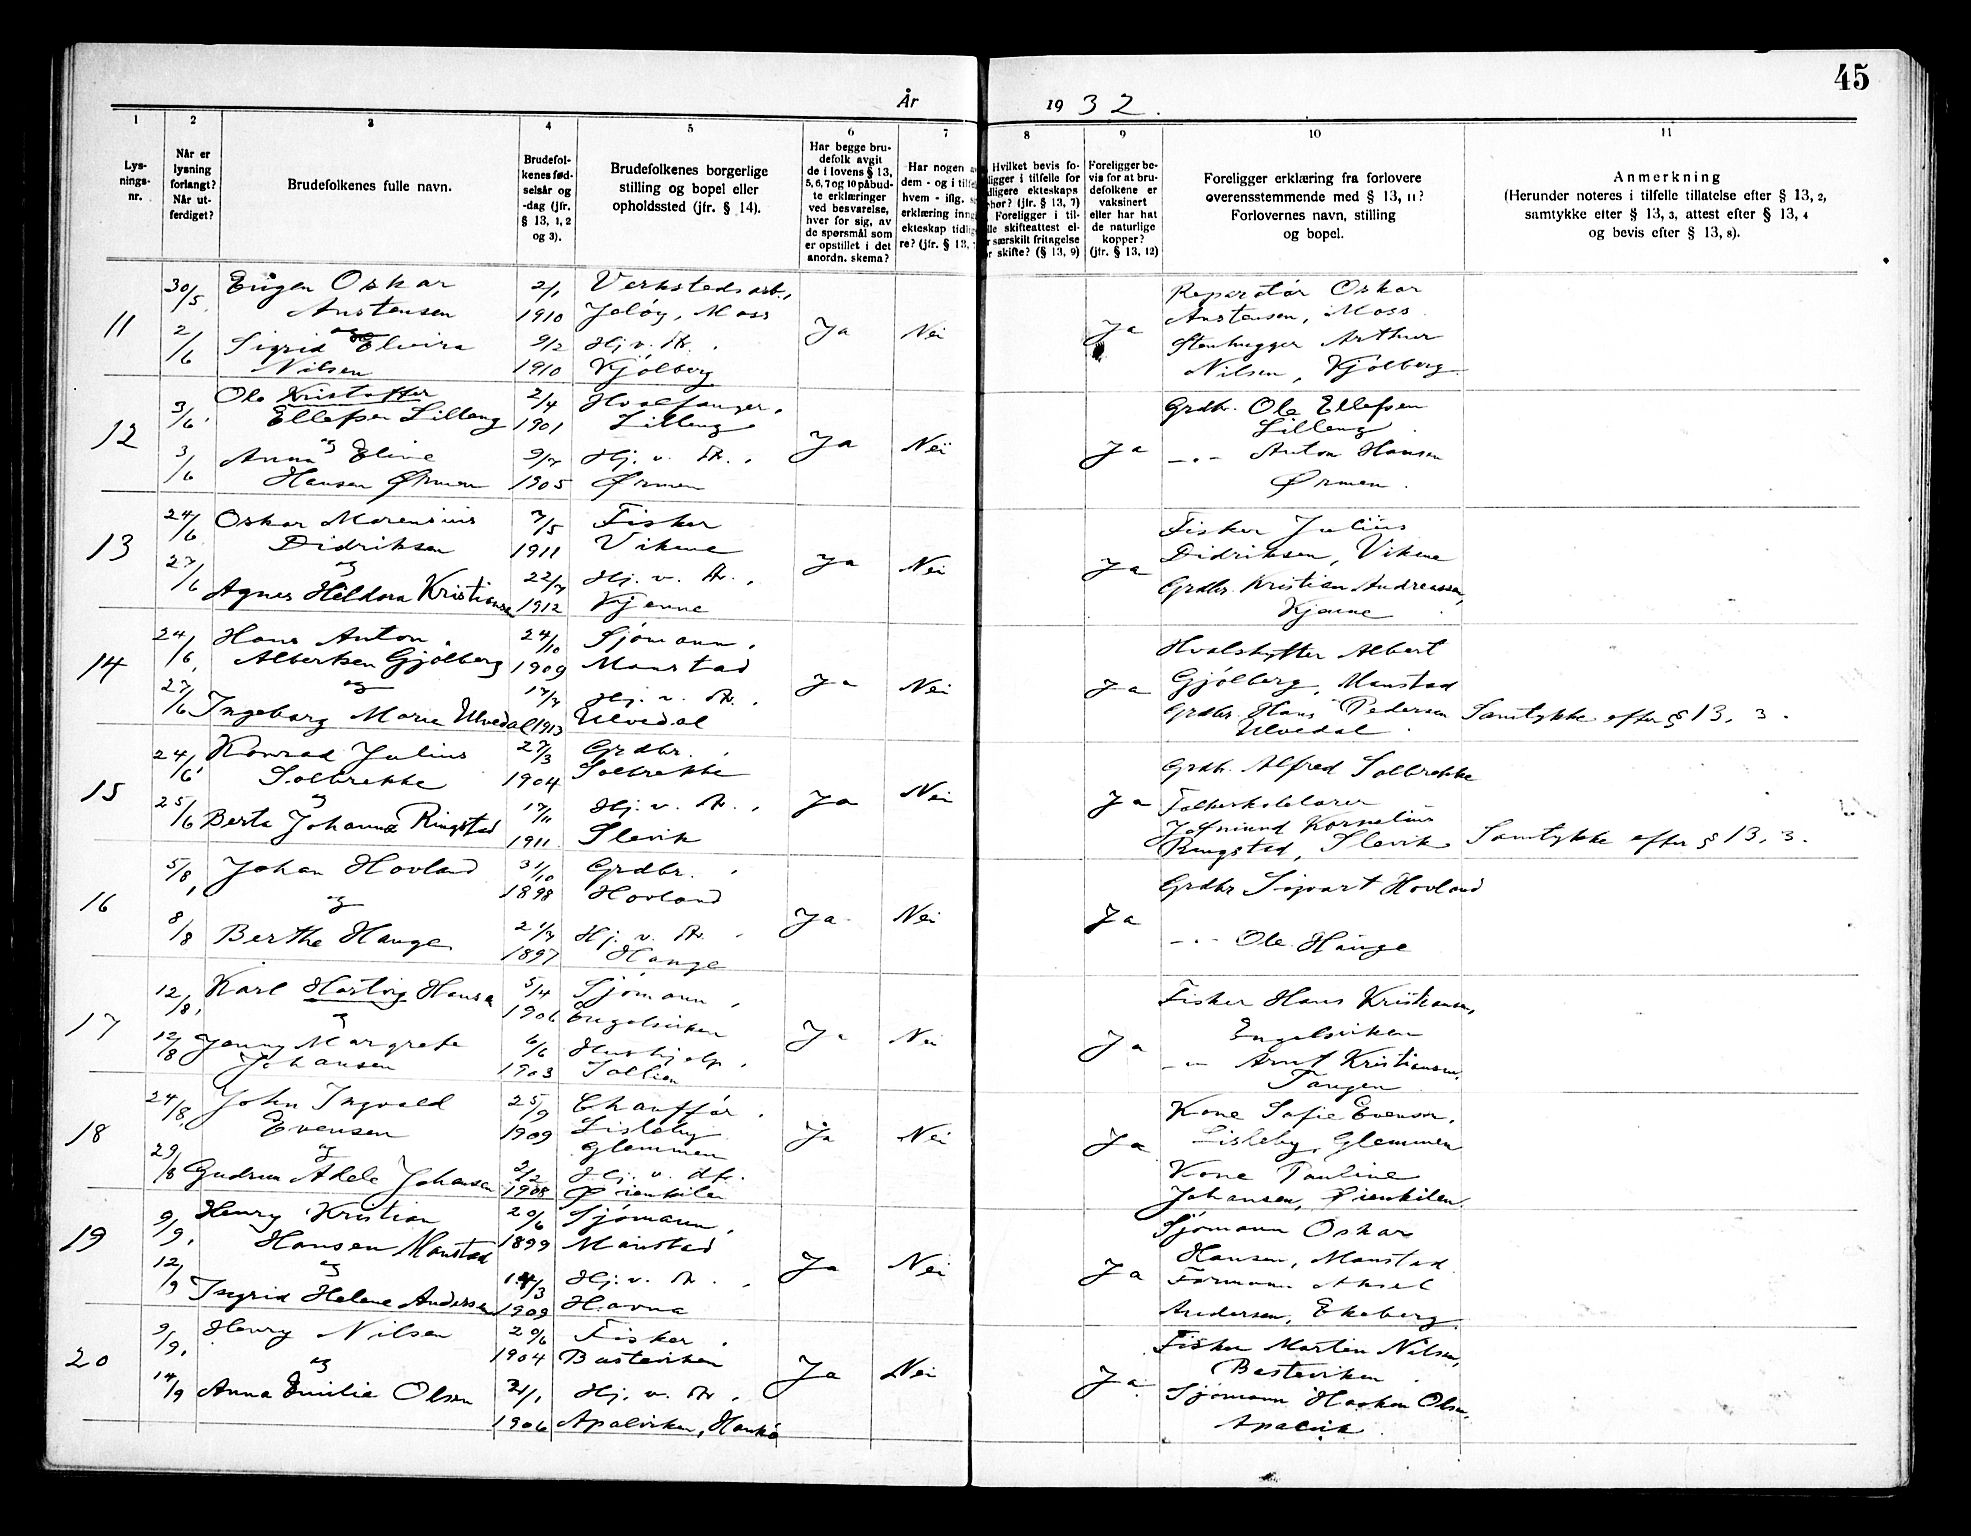 45
År 1932.
1 2 3 4 5 6 7 8 9 10 11
Lys-
nings-
nr.
Når er
lysning
forlangt?
Når ut-
ferdiget?
Brudefolkenes fulle navn.
Brudefol-
kenes fød-
selsår og
-dag (jfr.
§ 13, 1, 2
og 3).
Brudefolkenes borgerlige
stilling og bopel eller
opholdssted (jfr. § 14).
Har begge bru-
defolk avgit
de i lovens § 13,
5, 6, 7 og 10 påbud-
te erklæringer
ved besvarelse,
hver for sig, av
de spørsmål som
er opstillet i det
anordn. skema?
Har nogen
dem - og i
hvem - iflg.
erklæring
ekteskap
re? (jfr. § 13,
Hvilket bevis fo-
ligger i tilfelle for
dligere ekteskaps
hør? (jfr. § 13, 7)
Foreligger i til-
lle skifteattest el-
r særskilt fritagelse
r skifte? (§ 13, 9)
Foreligger be-
vis for at bru-
defolkene er
vaksinert
eller har hat
de naturlige
kopper?
(jfr. § 13, 12)
Foreligger erklæring fra forlovere
overensstemmende med § 13, 11?
Forlovernes navn, stilling
og bopel.
Anmerkning
(Herunder noteres i tilfelle tillatelse efter § 13, 2,
samtykke efter § 13, 3, attest efter § 13, 4
og bevis efter § 13, 8).
11 30/5 Eugen Oskar 2/1 Verkstedsarb., Reparatør Oskar
Anstensen 1910 Jeløy, Moss Ja Nei Ja Anstensen, Moss
2/6 Sigrid og Elvira 9/2 Hj. v. Stenhugger Arthur
Nilsen 1910 Kjølberg Nilsen, Kjølberg
12 3/6 Ole Kristoffer 2/4 Hvalfanger, Grdbr. Ole Ellefsen
Ellefsen Lilleng 1901 Lilleng Ja Nei Ja Lilleng
3/6 Anna og Eline 9/7 Hj. v. -"- Anton Hansen
Hansen Ørmen 1905 Ørmen Ørmen
13 24/6 Oskar Marensius 7/5 Fisker Fisker Julius
Didriksen 1911 Vikene Ja Nei Ja Didriksen, Vikene
og 27/6 22/7 Hj. v. Grdbr. Kristian Andreassen,
Agnes Heldora Kristiansen 1912 Kjenne Kjenne
14 24/6 Hans Anton 24/10 Sjømann, Hvalskytter Albert
Albertsen Gjølberg 1909 Manstad Ja Nei Ja Gjølberg, Manstad
og 27/6 17/7 Hj. v. Grdbr. Hans Pedersen Samtykke efter § 13, 3.
Ingeborg Marie Ulvedal 1913 Ulvedal Ulvedal
15 24/6 Konrad Julius 27/3 Grdbr. Grdbr. Alfred Solbrekke
Solbrekke 1904 Solbrekke Ja Nei Ja
og 25/6 17/11 Hj. v. Folkeskolelærer
Berta Johanne Ringstad 1911 Slevik Kornelius
Ringstad, Slevik Samtykke efter § 13, 3.
16 5/8 Johan Hovland 31/10 Grdbr. Grdbr Sigvart Hovland
og 1898 Hovland Ja Nei Ja
8/8 Berthe Hauge 21/7 Hj. v. -"- Ole Hauge
1897 Hauge
17 12/8 Karl Hartvig Hansen 5/4 Sjømann, Fisker Hans Kristiansen,
og 1906 Engelsviken Ja Nei Ja Engelsviken
12/8 Jenny Margrete 6/6 Hushjelp, -"- Arnt Kristiansen,
Johansen 1903 Tangen
18 24/8 John Ingvald 25/9 Chauffør, Kone Sofie Evensen,
Evensen 1909 Lisleby Glemmen Ja Nei Ja Lisleby, Glemmen
og 29/8 2/12 Hj. v. Kone Pauline
Gudrun Adele Johansen 1908 Øienkilen Johansen, Øienkilen
19 9/9 Henry Kristian 20/6 Sjømann, Sjømann Oskar
Hansen Manstad 1899 Manstad Ja Nei Ja Hansen, Manstad
og 12/9 14/3 Hj. v. Formann Aksel
Ingrid Helene Andersen 1909 Havna Andersen, Ekeberg
20 9/9 Henry Nilsen 20/6 Fisker, Fisker Martin Nilsen,
og 1904 Basteviken Ja Nei Ja Basteviken
14/9 Anna Emilie Olsen 21/1 Hj. v. Sjømann Haakon Olsen,
1906 Apalviken, Hankø Apalvik